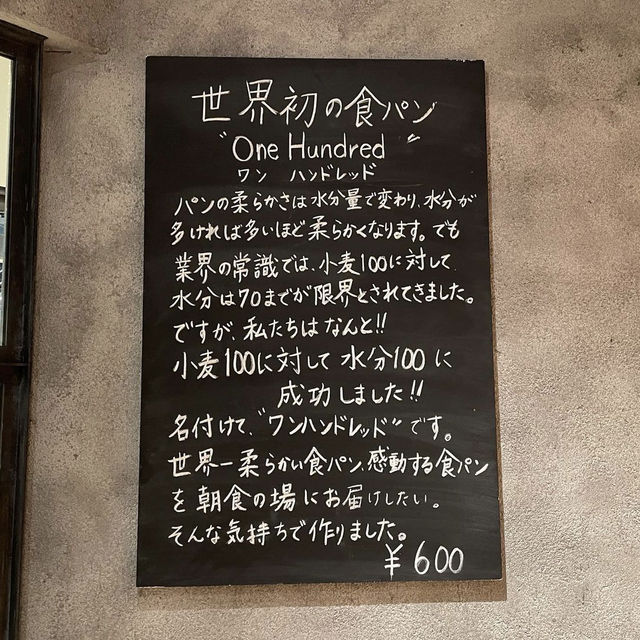 世界初の食パン
"One Hundred"
ワン ハンドレッド
パンの柔らかさは水分量で変わり、水分が
多ければ多いほど柔らかくなります。でも
業界の常識では、小麦100に対して
水分は70までが限界とされてきました。
ですが、私たちはなんと!!
小麦100に対して水分100に
成功しました!!
名付けて、"ワンハンドレッド"です。
世界一柔らかい食パン、感動する食パン
を朝食の場にお届けしたい。
そんな気持ちで作りました。
¥600